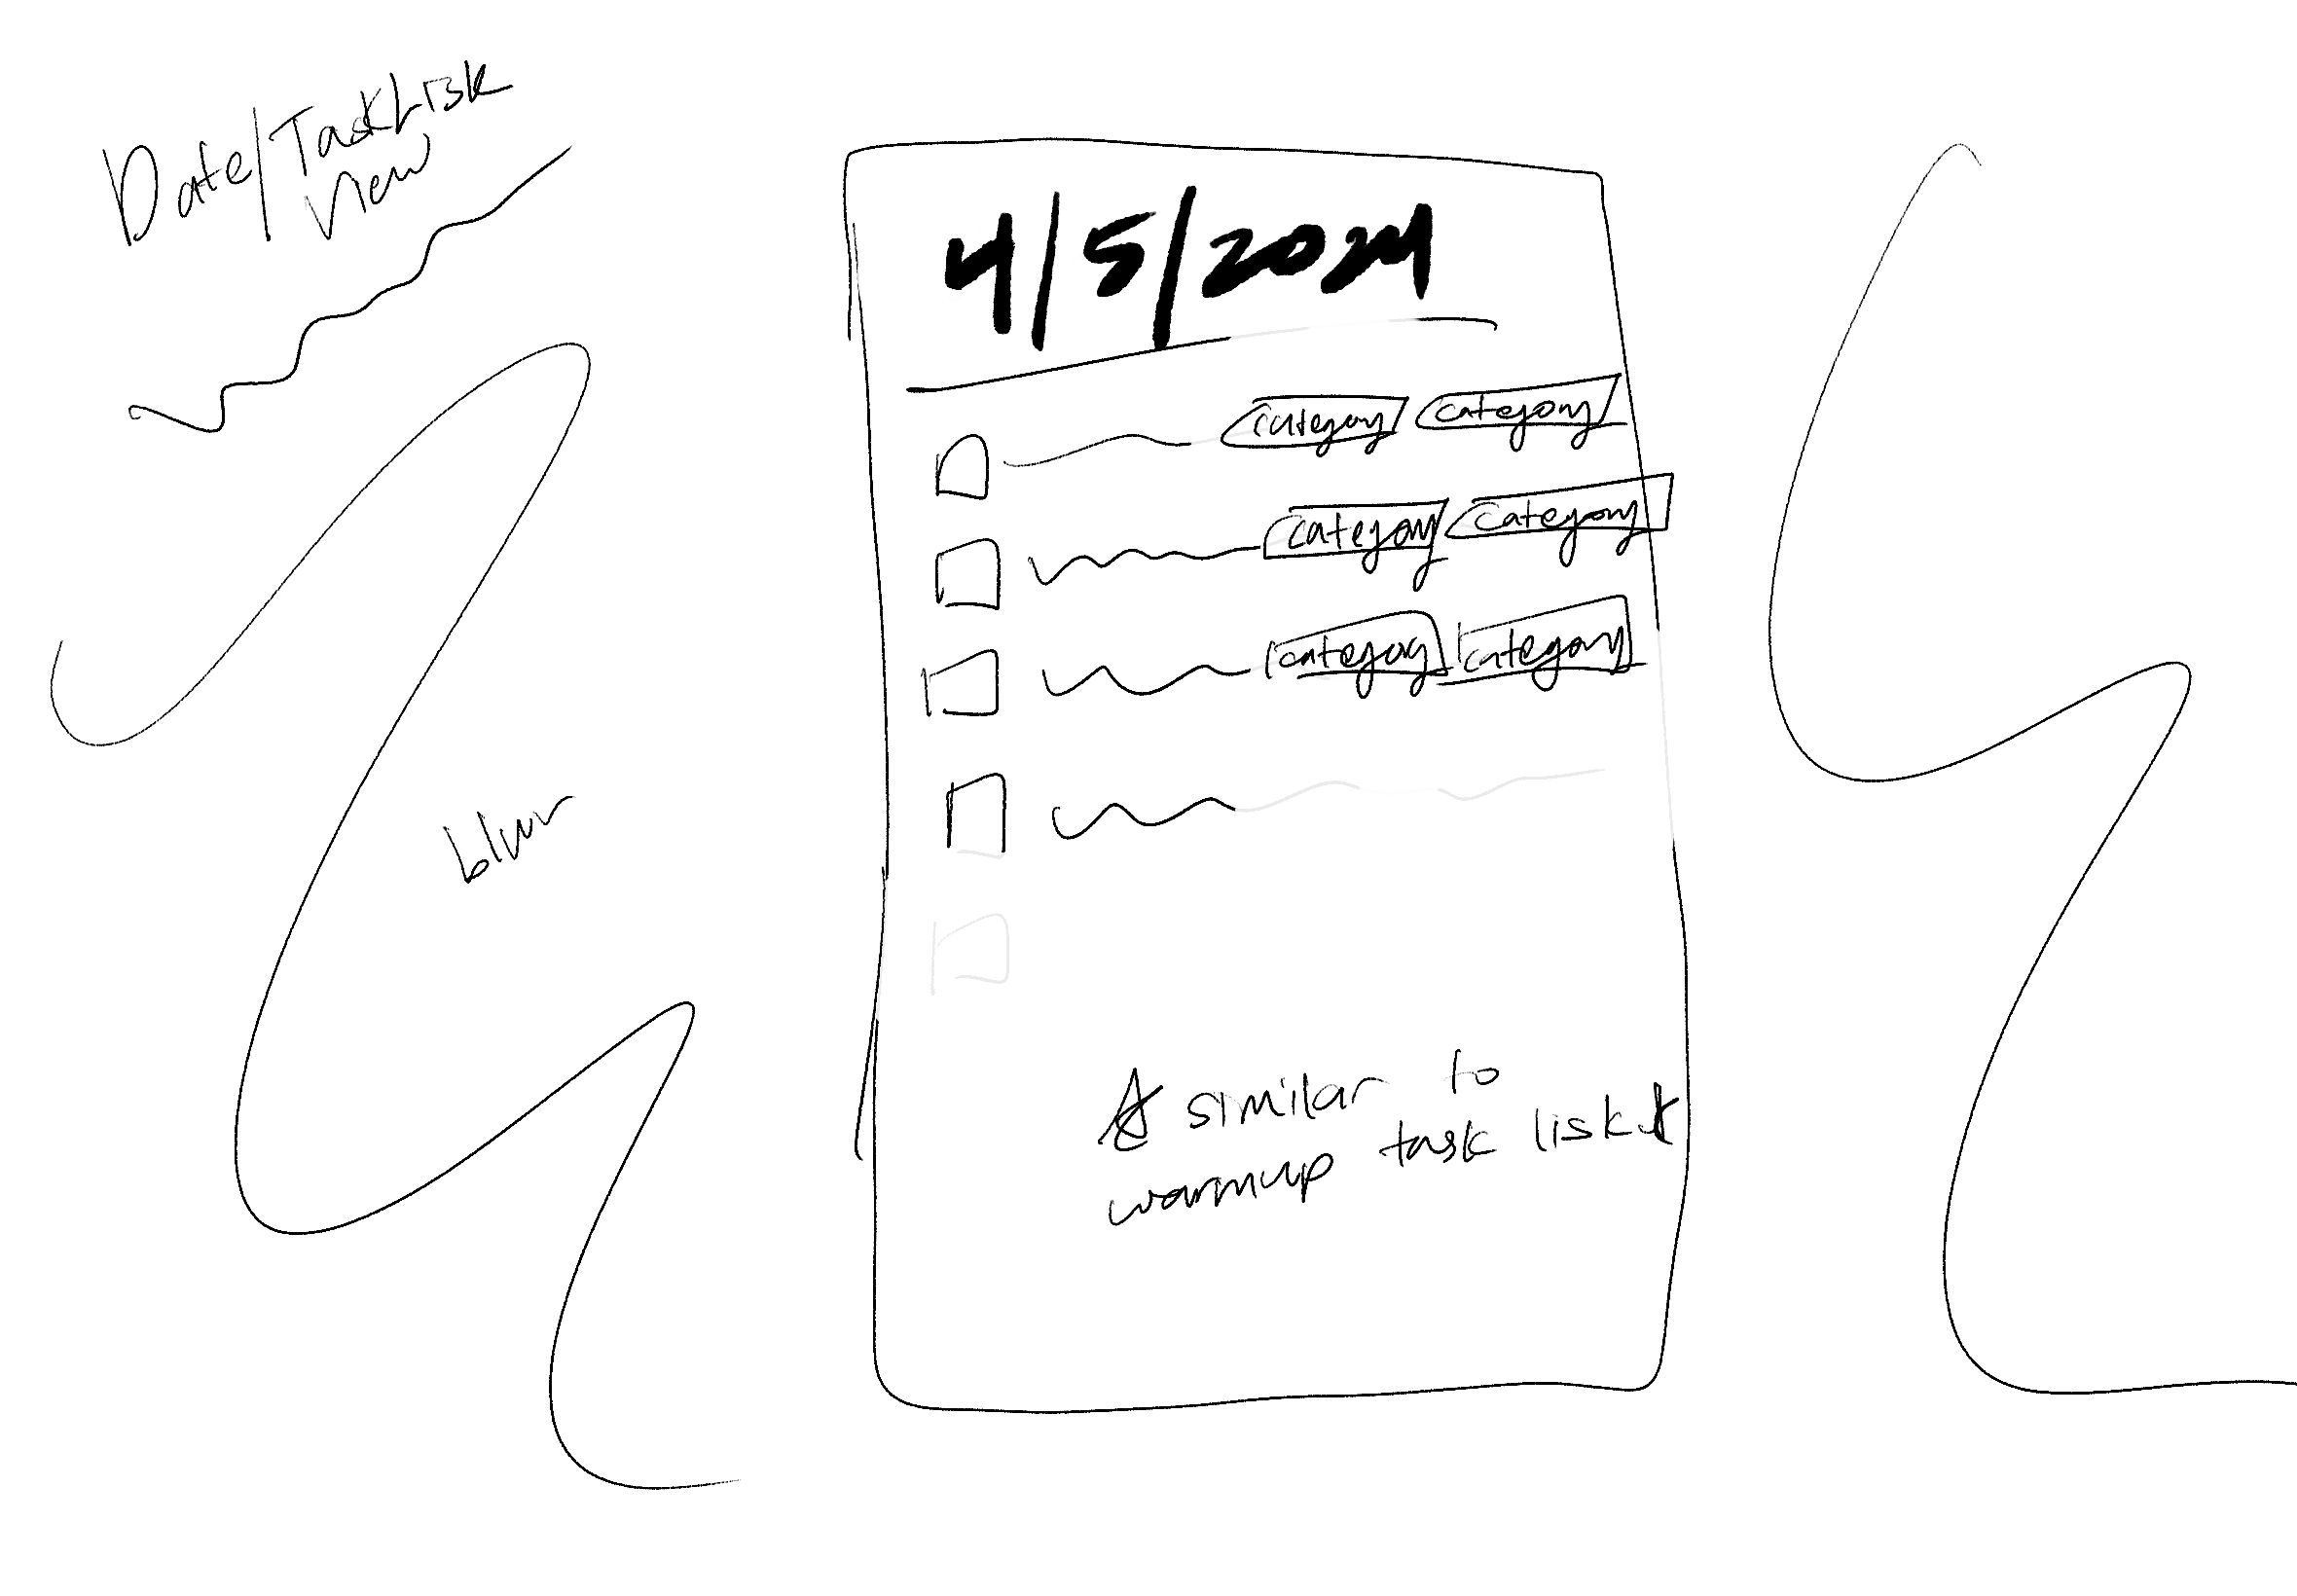 Date/TaskList
View
4/5/2024
category category
category category
category category
blur
☆ similar to
warmup task list ☆